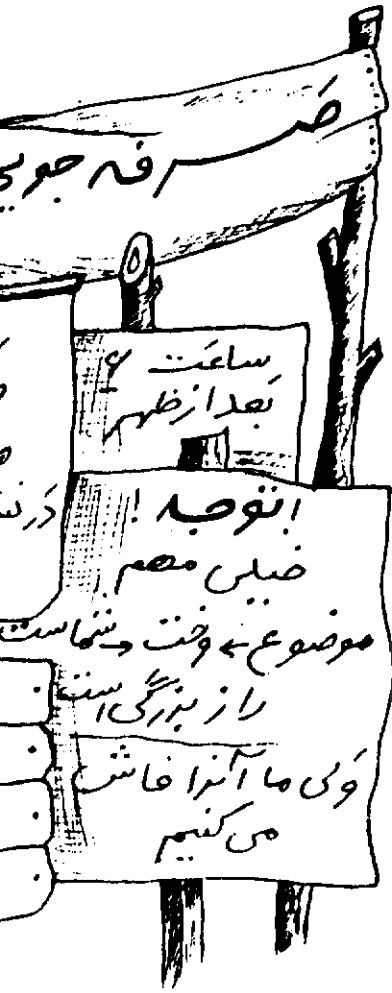 صرفه جویی
ساعت ۶
بعد از ظهر
! توجه !
خیلی مهم
موضوع ← وقت → شماست
راز بزرگی است
ولی ما آنرا فاش
می کنیم